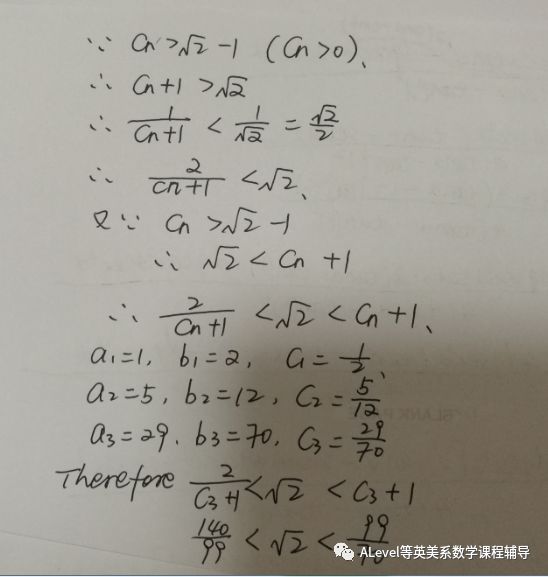 ∵ Cn > √2 - 1 (Cn > 0)、
∴ Cn + 1 > √2
∴ 1/(Cn+1) < 1/√2 = √2/2
∴ 2/(Cn+1) < √2、
又∵ Cn > √2 - 1
∴ √2 < Cn + 1
∴ 2/(Cn+1) < √2 < Cn + 1、
a₁=1, b₁=2, C₁=1/2、
a₂=5, b₂=12, C₂=5/12
a₃=29. b₃=70, C₃=29/70
Therefore 2/(C₃+1) < √2 < C₃+1
140/99 < √2 < 99/
ALevel等英美系数学课程辅导